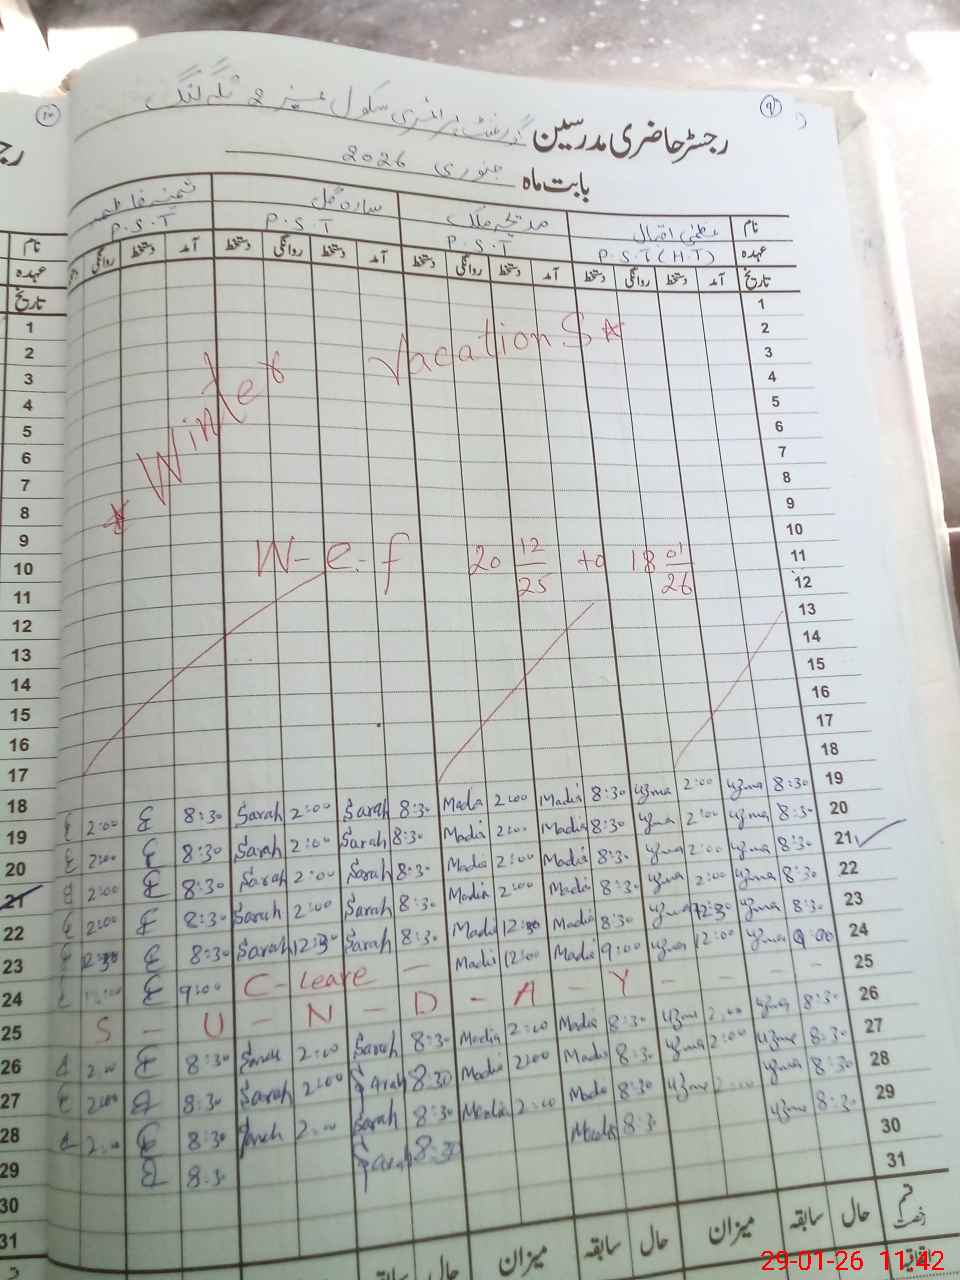 رجسٹر حاضری مدرسین گورنمنٹ پرائمری سکول نمبر 2
بابت ماہ جنوری 2026
نام عظمیٰ اقبال مدیحہ ملک سارہ گل ثمینہ فاطمہ
عہدہ P.S.T (H.T) P.S.T P.S.T P.S.T
تاریخ آمد دستخط روانگی دستخط آمد دستخط روانگی دستخط آمد دستخط روانگی دستخط آمد دستخط روانگی
1
2
3
4
5
6
7
8
9
10
11
12
13
14
15
16
17
18
* Winter Vacations *
W-e-f 20 12/25 to 18 01/26
19 8:30 uzma 2:00 uzma 8:30 Madia 2:00 Madia 8:30 Sarah 2:00 Sarah 8:30 2:00
20 8:30 uzma 2:00 uzma 8:30 Madia 2:00 Madia 8:30 Sarah 2:00 Sarah 8:30 2:00
21 8:30 uzma 2:00 uzma 8:30 Madia 2:00 Madia 8:30 Sarah 2:00 Sarah 8:30 2:00
22 8:30 uzma 2:00 uzma 8:30 Madia 2:00 Madia 8:30 Sarah 2:00 Sarah 8:30 2:00
23 8:30 uzma 12:30 uzma 8:30 Madia 12:30 Madia 8:30 Sarah 12:30 Sarah 8:30 12:30
24 9:00 uzma 12:00 uzma 9:00 Madia 12:00 Madia — C-leave 9:00
25 S - U - N - D - A - Y - - - -
26 8:30 uzma 2:00 uzma 8:30 Madia 2:00 Madia 8:30 Sarah 2:00 Sarah 8:30 2:00
27 8:30 uzma 2:00 uzma 8:30 Madia 2:00 Madia 8:30 Sarah 2:00 Sarah 8:30 2:00
28 8:30 uzma 2:00 uzma 8:30 Madia 2:00 Madia 8:30 Sarah 2:00 Sarah 8:30 2:00
29 8:30 uzma 8:30 Madia 8:30 Sarah 8:30
30
31
قسم رخصت حال سابقہ میزان حال سابقہ میزان حال سابقہ
نام
عہدہ
تاریخ
1
2
3
4
5
6
7
8
9
10
11
12
13
14
15
16
17
18
19
20
21
22
23
24
25
26
27
28
29
30
31
29-01-26 11:42